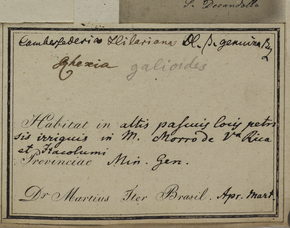 S. Decandolle
Cambessedesia Hilariana DC. β. genuina
Rhexia galioides
Habitat in altis pascuis locis petro
sis irriguis in M. Morro de Va Rica
et Itacolumi
Provinciae Min. Gen.
Dr Martius Iter Brasil. Apr. Mart.